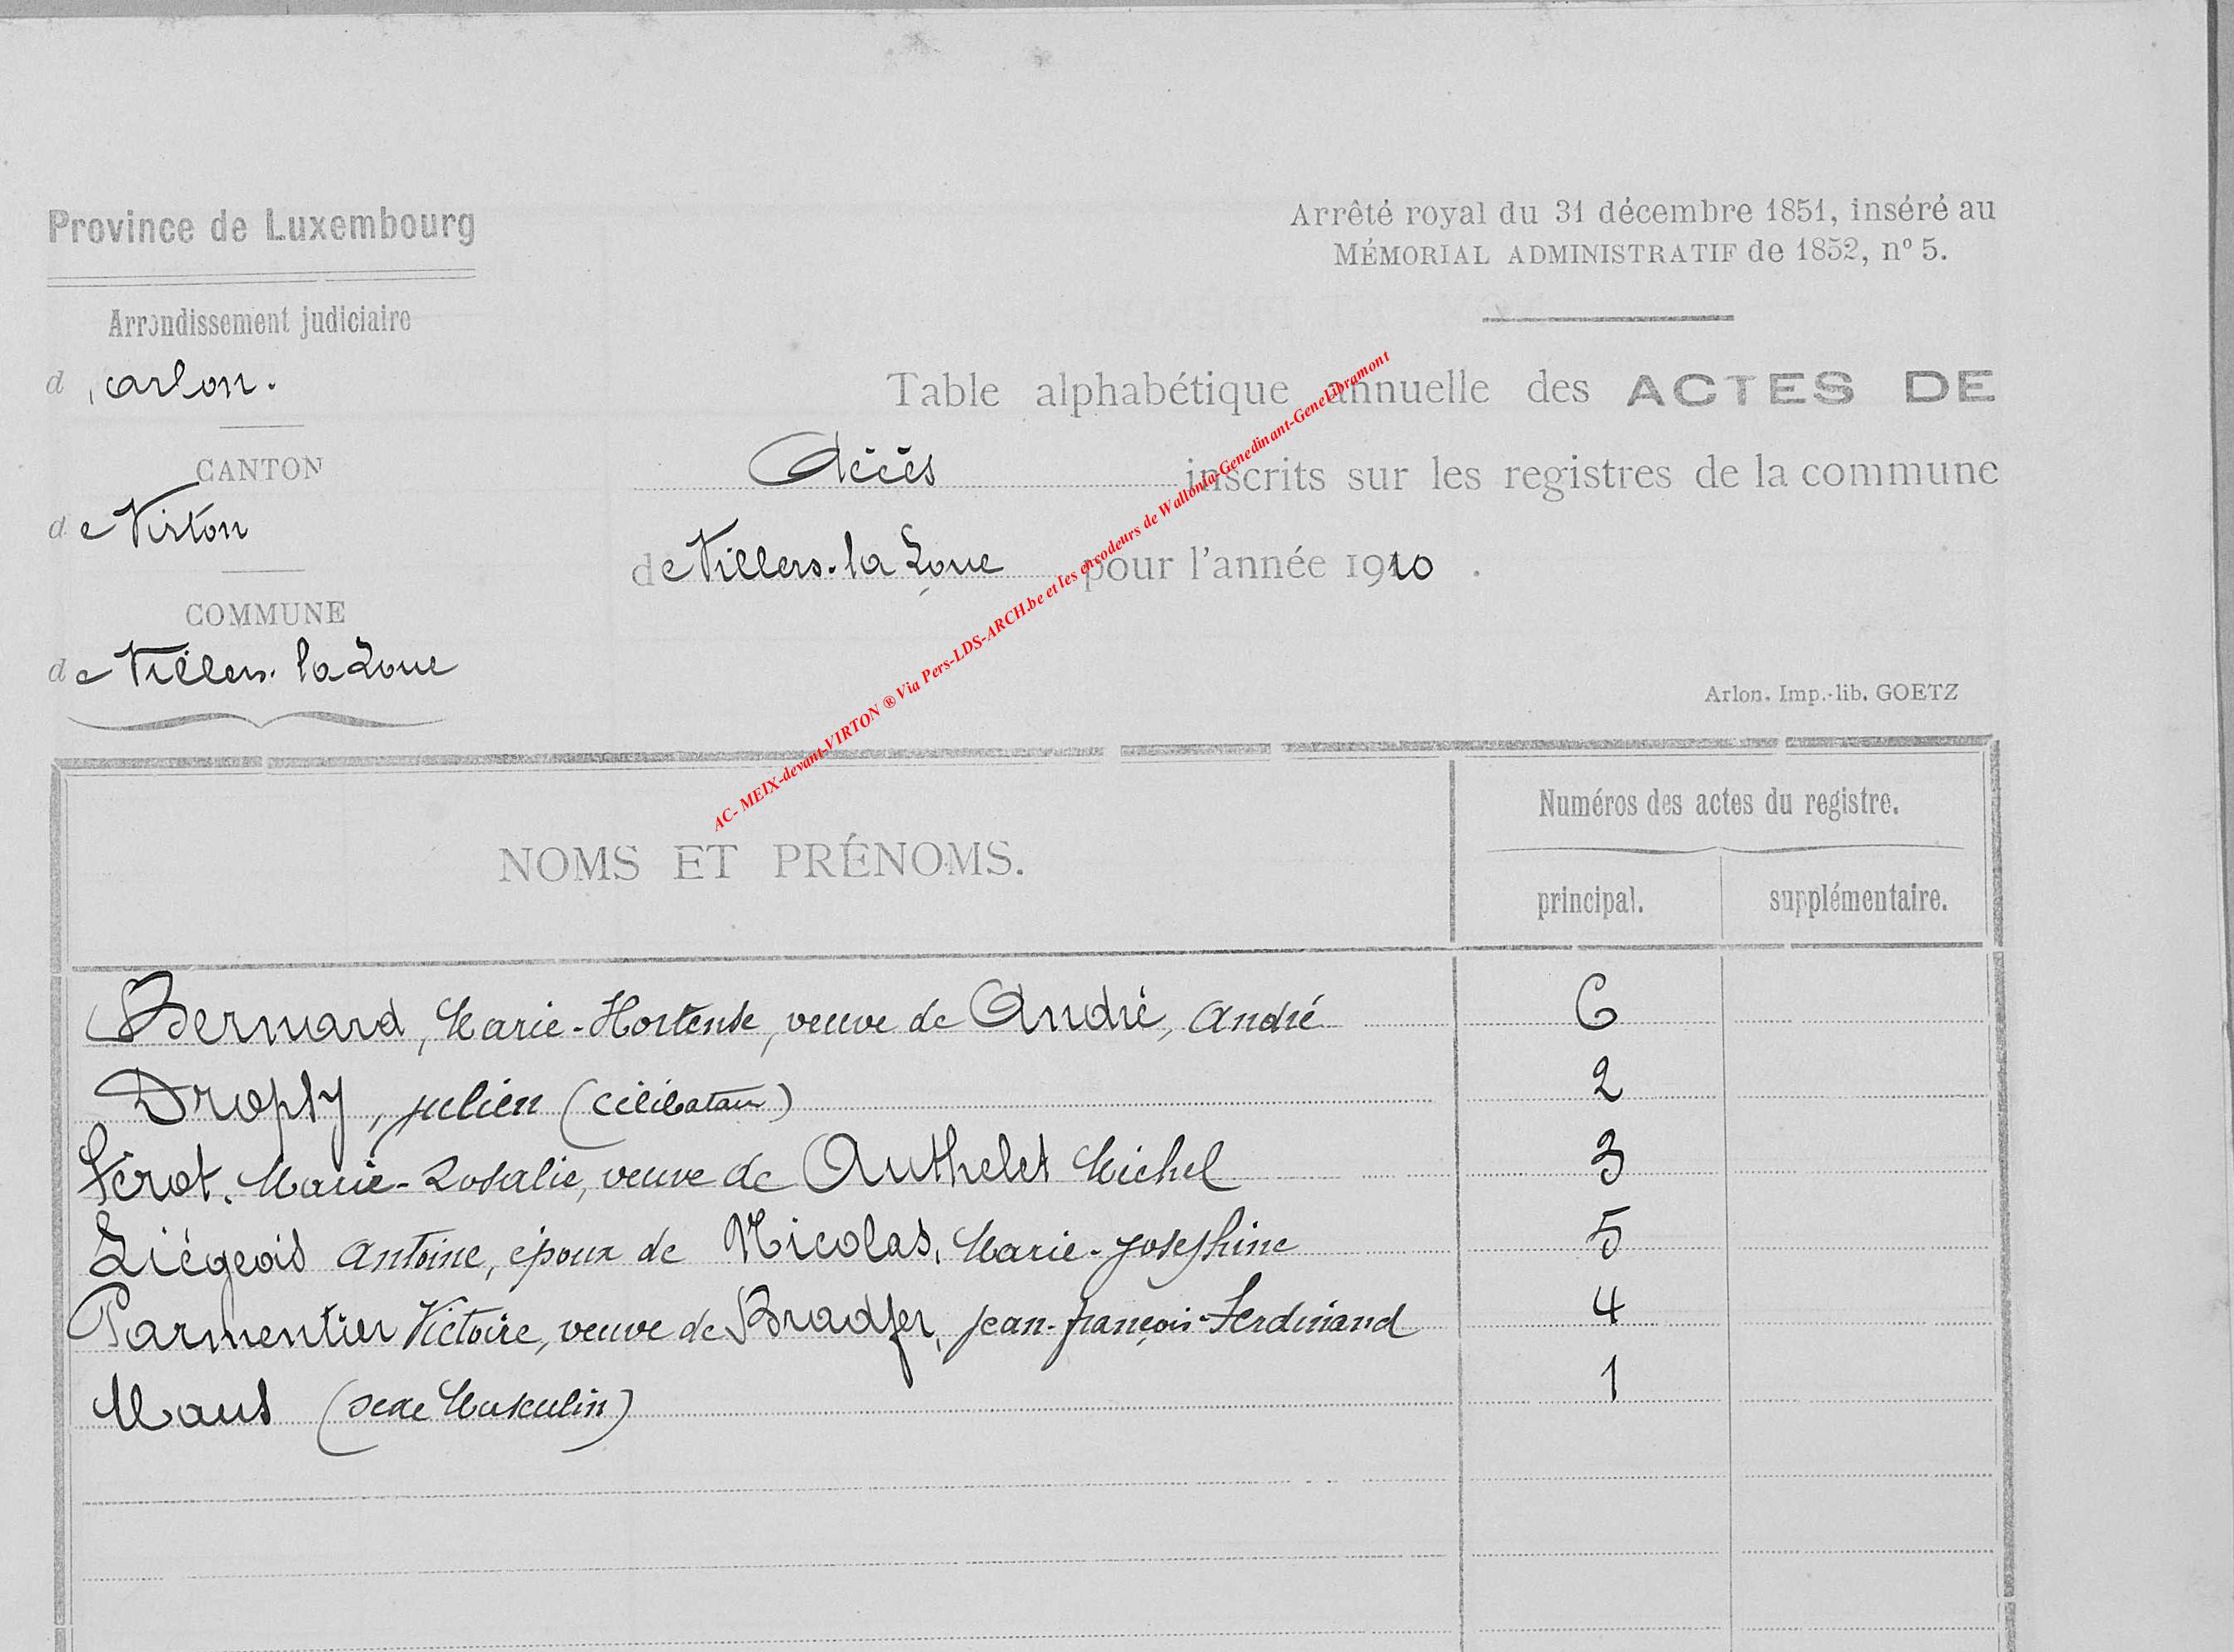 Province de Luxembourg
Arrondissement judiciaire
d'Arlon.
CANTON
de Virton
COMMUNE
de Villers-la-Loue
Arrêté royal du 31 décembre 1851, inséré au
MÉMORIAL ADMINISTRATIF de 1852, nº 5.
Table alphabétique annuelle des ACTES DE
Décès inscrits sur les registres de la commune
de Villers-la-Loue pour l'année 1910.
Arlon. Imp.-lib. GOETZ
AC- MEIX-devant-VIRTON ® Via Pers-LDS-ARCH.be et les encodeurs de Wallonia-Genedinant-GeneLibramont
NOMS ET PRÉNOMS.
Numéros des actes du registre.
principal. supplémentaire.
Bernard, Marie-Hortense, veuve de André, André 6
Dropsy, Julien (célibataire) 2
Férot. Marie-Rosalie, veuve de Authelet Michel 3
Liégeois Antoine, époux de Nicolas, Marie-Joséphine 5
Parmentier Victoire, veuve de Bradfer, Jean-françois-Ferdinand 4
(sexe Masculin) 1